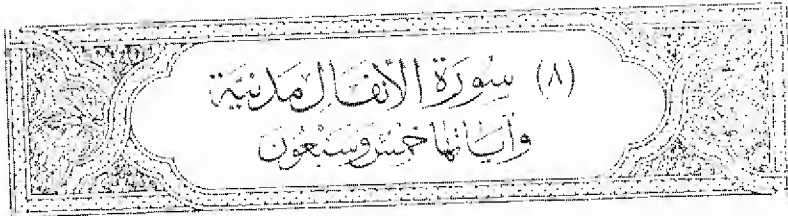 (٨) سُورَةُ الأَنفَالِ مَدَنِيَّة
وَآيَاتُهَا خَمْسٌ وَسَبْعُون